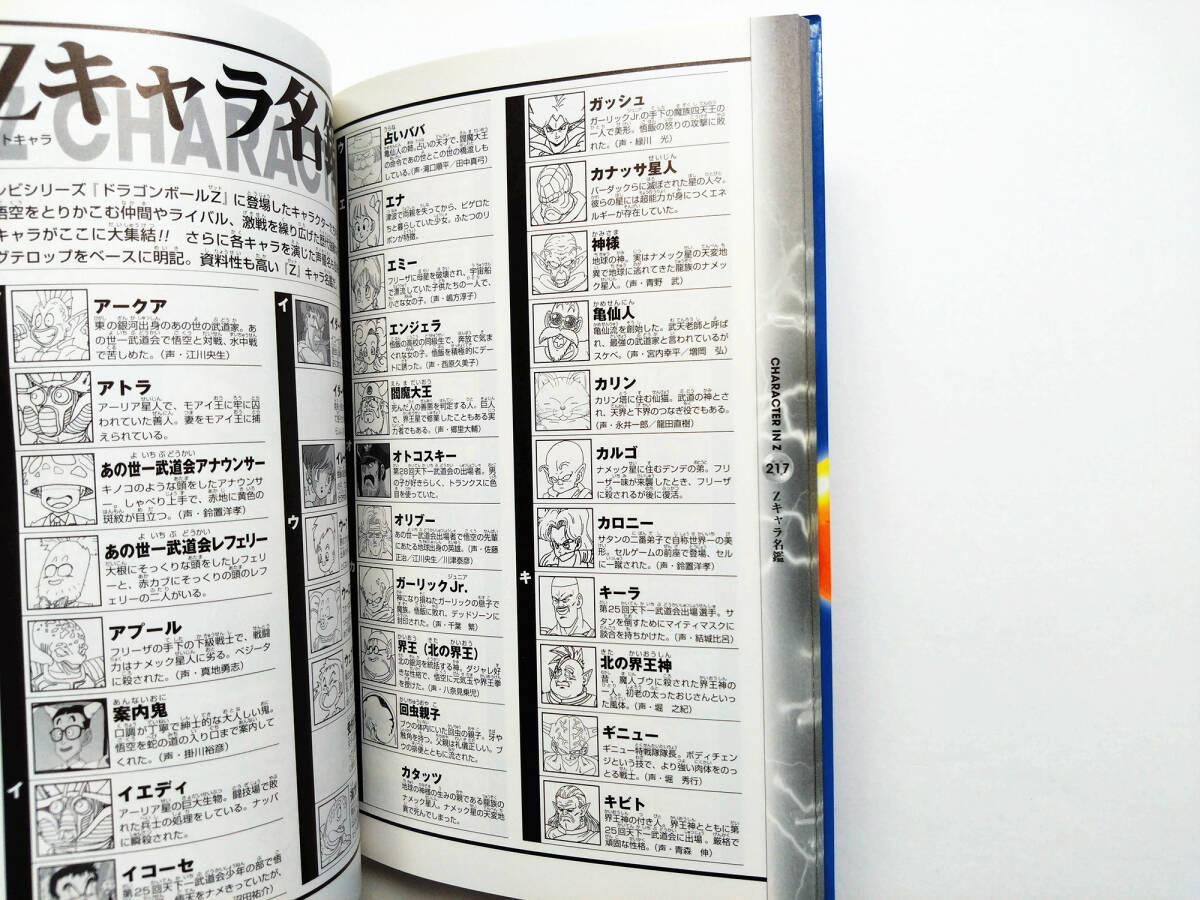 Zキャラ名
CHARAC
トキャラ
レビシリーズ『ドラゴンボールZ』に登場したキャラクター
悟空をとりかこむ仲間やライバル、激戦を繰り広げた
キャラがここに大集結!! さらに各キャラを演じた声優
グテロップをベースに明記。資料性も高い『Z』キャラ名鑑
アークア
東の銀河出身のあの世の武道家。あ
の世一武道会で悟空と対戦、水中戦
で苦しめた。(声・江川央生)
アトラ
アーリア星人で、モアイ王に牢に囚
われていた善人。妻をモアイ王に捕
えられている。
あの世一武道会アナウンサー
キノコのような頭をしたアナウンサ
ー。しゃべり上手で、赤地に黄色の
斑紋が目立つ。(声・鈴置洋孝)
あの世一武道会レフェリー
大根にそっくりな頭をしたレフェリ
ーと、赤カブにそっくりの頭のレフ
ェリーの二人がいる。
アプール
フリーザの手下の下級戦士で、戦闘
力はナメック星人に劣る。ベジータ
に殺された。(声・真地勇志)
案内鬼
口調が丁寧で紳士的な大人しい鬼。
悟空を蛇の道の入り口まで案内して
くれた。(声・掛川裕彦)
イ
イエディ
アーリア星の巨大生物。闘技場で敗
れた兵士の処理をしている。ナッパ
に瞬殺された。
イコーセ
第25回天下一武道会少年の部で悟
イ
ウ
ウ
占いババ
亀仙人の姉。占いの天才で、閻魔大王
の命令であの世とこの世の橋渡しも
している。(声・滝口順平/田中真弓)
エ
エナ
津波で両親を失ってから、ピゲロた
ちと暮らしていた少女。ふたつのリ
ボンが特徴。
エミー
フリーザに母星を破壊され、宇宙船
で漂流していた子供たちの一人で、
小さな女の子。(声・嶋方淳子)
エンジェラ
悟飯の高校の同級生で、奔放で気ま
ぐれな女の子。悟飯を積極的にデー
トに誘った。(声・西原久美子)
閻魔大王
死んだ人の善悪を判定する人。巨人
で、界王星で修業したこともある実
力者でもある。(声・郷里大輔)
オ
オトコスキー
第28回天下一武道会の出場者。男
の子が好きらしく、トランクスに色
目を使っていた。
オリブー
あの世一武道会出場者で悟空の先輩
にあたる地球出身の英雄。(声・佐藤
正治/江川央生/川津泰彦)
カ
ガーリックJr.
神になり損ねたガーリックの息子で
魔族。悟飯に敗れ、デッドゾーンに
封印された。(声・千葉 繁)
界王(北の界王)
北の銀河を統括する神。ダジャレ好
きな性格で、悟空に元気玉や界王拳
を授けた。(声・八奈見乗児)
回虫親子
ブウの体内にいた回虫の親子。オヤ
ウの宿便とともに流された。
カタッツ
地球の神様の生みの親である龍族の
ナメック星人。ナメック星の天変地
異で死んでしまった。
ガッシュ
ガーリックJr.の手下の魔族四天王の
一人で美形。悟飯の怒りの攻撃に敗
れた。(声・緑川 光)
カナッサ星人
バーダックらに滅ぼされた星の人々。
彼らの星には超能力が身につくエネ
ルギーが存在していた。
神様
地球の神。実はナメック星の天変地
異で地球に逃れてきた龍族のナメッ
ク星人。(声・青野 武)
亀仙人
亀仙流を創始した。武天老師と呼ば
れ、最強の武道家と言われているが
スケベ。(声・宮内幸平/増岡 弘)
カリン
カリン塔に住む仙猫。武道の神とさ
れ、天界と下界のつなぎ役でもある。
(声・永井一郎/龍田直樹)
カルゴ
ナメック星に住むデンデの弟。フリ
ーザ一味が来襲したとき、フリーザ
に殺されるが後に復活。
カロニー
サタンの二番弟子で自称世界一の美
形。セルゲームの前座で登場、セル
に一蹴された。(声・鈴置洋孝)
キ
キーラ
第25回天下一武道会出場選手。サ
タンを倒すためにマイティマスクに
談合を持ちかけた。(声・結城比呂)
北の界王神
昔、魔人ブウに殺された界王神の
一人。初老の太ったおじさんといっ
た風体。(声・堀 之紀)
ギニュー
ギニュー特戦隊隊長。ボディチェン
ジという技で、より強い肉体をのっ
とる戦士。(声・堀 秀行)
キビト
界王神の付き人。界王神とともに第
25回天下一武道会に出場。厳格で
頑固な性格。(声・青森 伸)
CHARACTER IN Z
217
Zキャラ名鑑